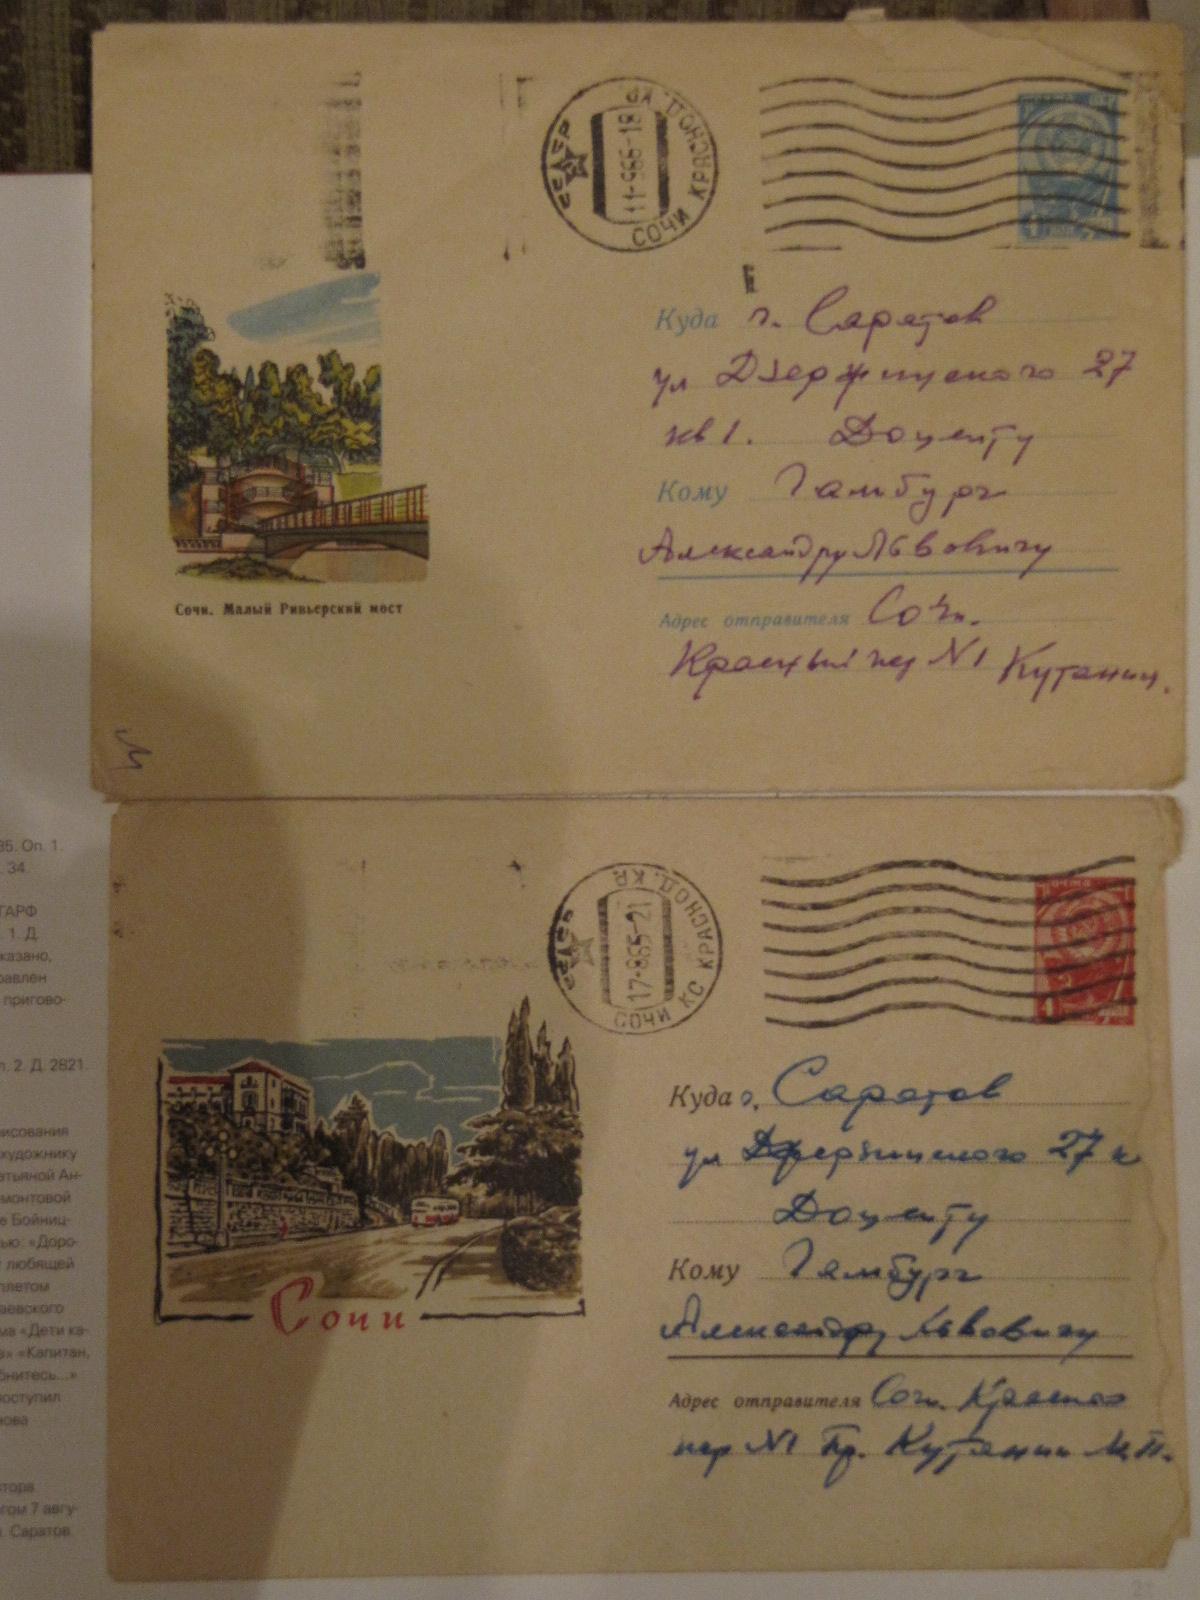 СССР
СОЧИ КРАСНОД. КР.
11-965-18
ПОЧТА
4
Куда г. Саратов
ул Дзержинского 27
кв 1. Доценту
Кому Гамбург
Александру Львовичу
Адрес отправителя Сочи.
Красный пер N1 Кутанин.
Сочи. Малый Ривьерский мост
СССР
СОЧИ КС КРАСНОД. КР.
17-865-21
ПОЧТА
4
Куда г. Саратов
ул Дзержинского 27 к
Доценту
Кому Гамбург
Александру Львовичу
Адрес отправителя Сочи. Красный
пер N1 Пр. Кутанин М.П.
Сочи
35. Оп. 1.
34.
ГАРФ
1. Д.
казано,
равлен
пригово-
2. Д. 2821.
исования
художнику
атьяной Ан-
монтовой
е Бойниц-
ью: «Доро-
любящей
плетом
аевского
ма «Дети ка-
«Капитан,
бнитесь...»
поступил
нова
тора
гом 7 авгу-
Саратов.